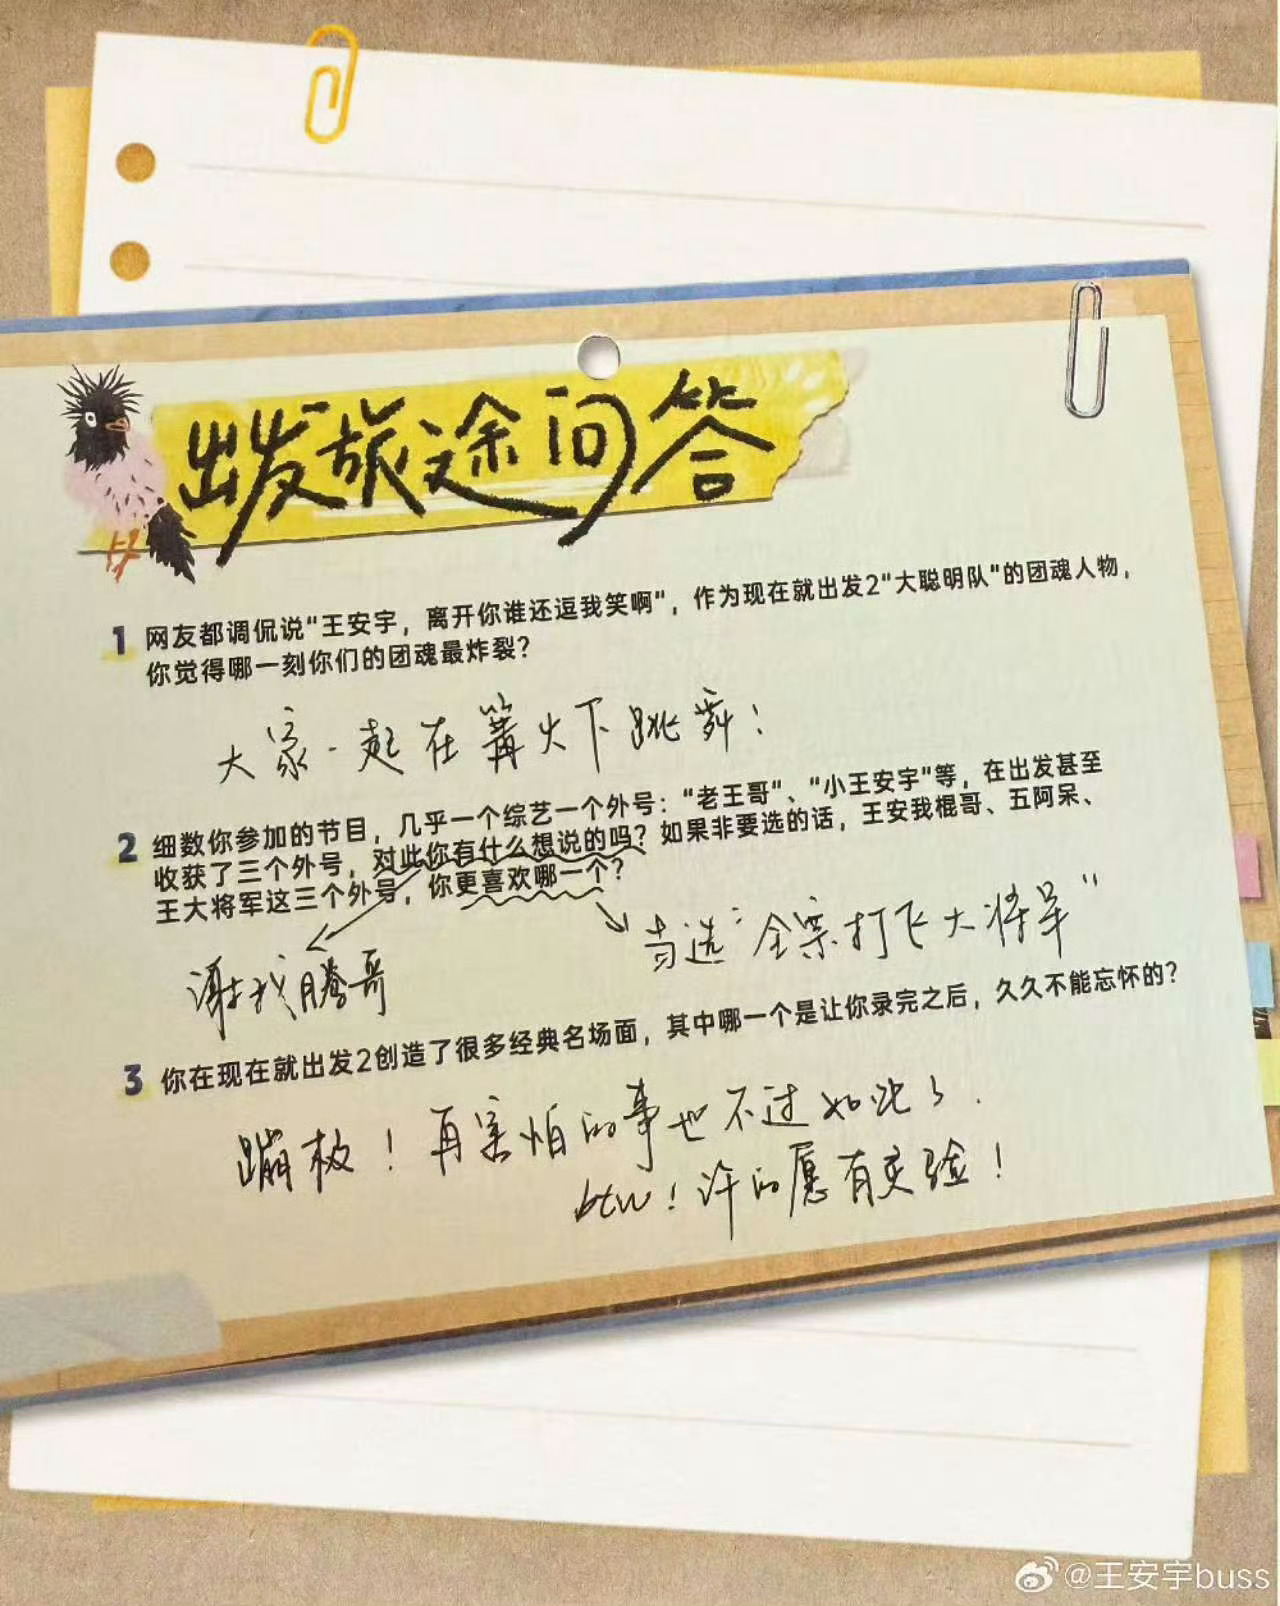 出发旅途问答
1 网友都调侃说"王安宇，离开你谁还逗我笑啊"，作为现在就出发2"大聪明队"的团魂人物，
你觉得哪一刻你们的团魂最炸裂？
大家一起在篝火下跳舞！
2 细数你参加的节目，几乎一个综艺一个外号："老王哥"、"小王安宇"等，在出发甚至
收获了三个外号，对此你有什么想说的吗？如果非要选的话，王安我棍哥、五阿呆、
王大将军这三个外号，你更喜欢哪一个？
谢我腾哥
当选"全票打飞大将军"
3 你在现在就出发2创造了很多经典名场面，其中哪一个是让你录完之后，久久不能忘怀的？
蹦极！再害怕的事也不过如此了.
btw！许的愿有灵验！
@王安宇buss